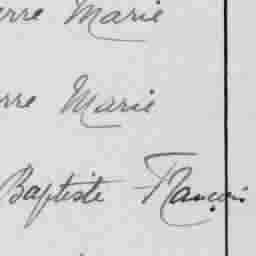 erre Marie
rre Marie
Baptiste François